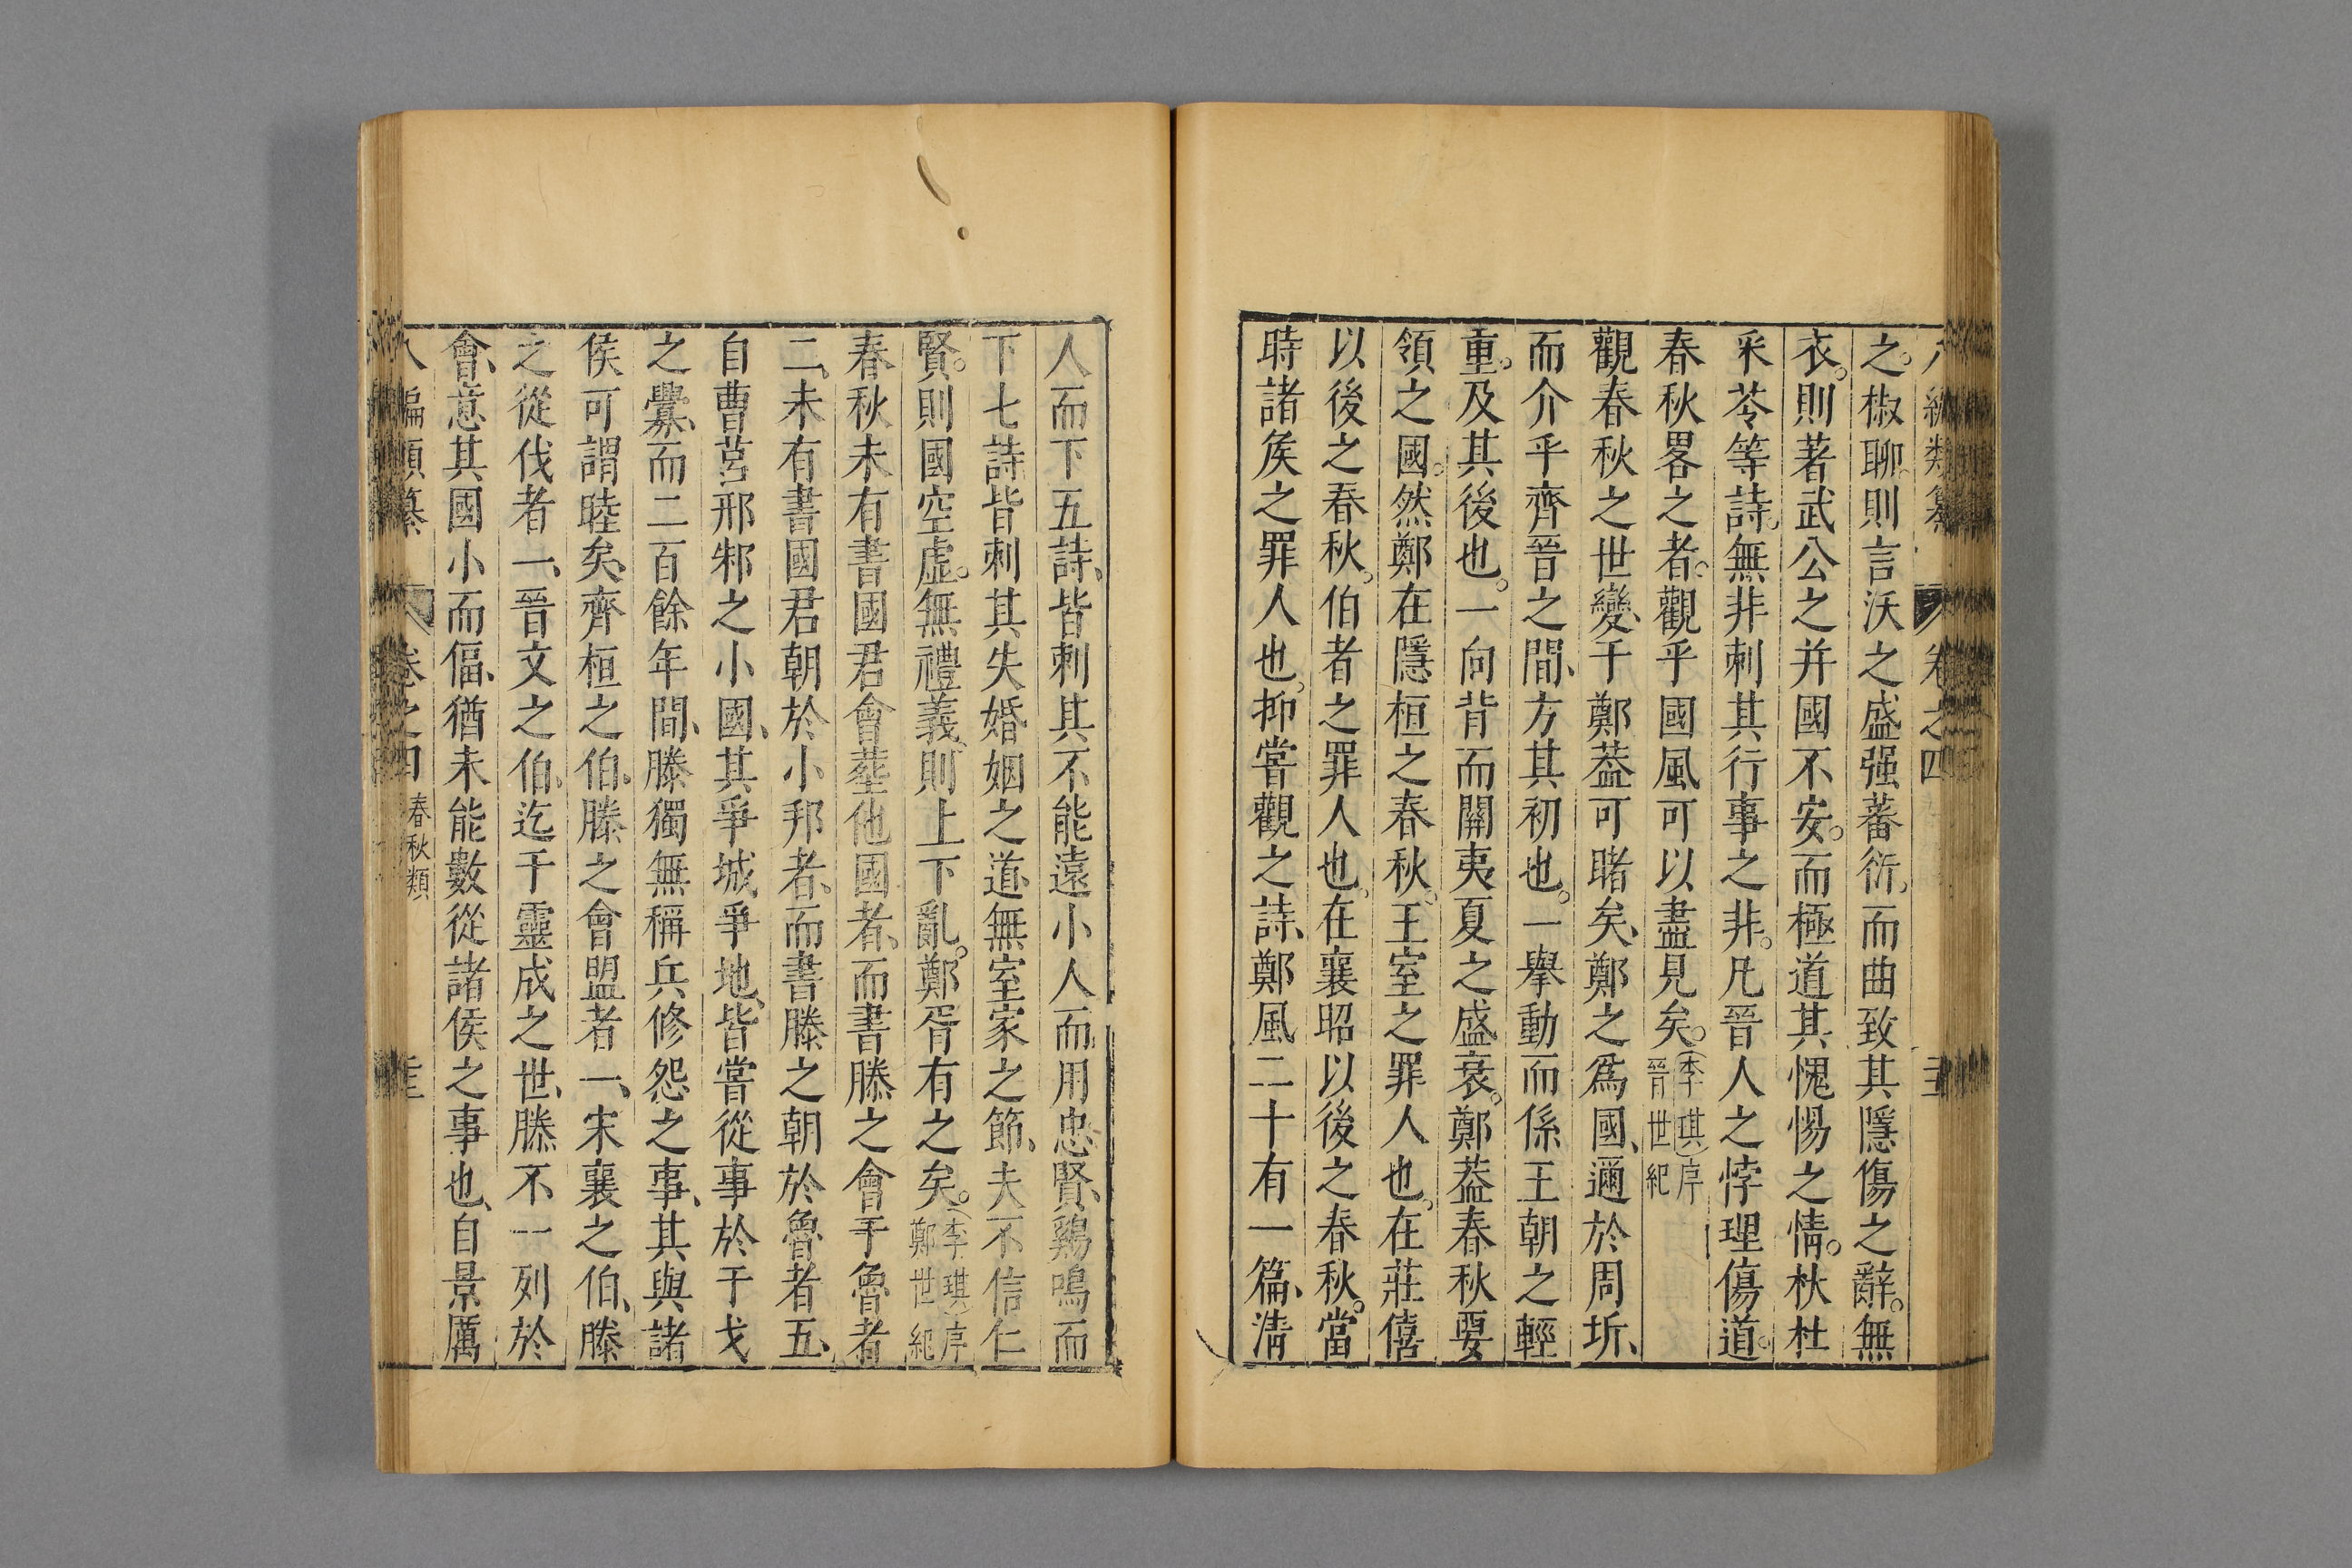 八編類纂 卷之四
之。椒聊則言沃之盛强蕃衍。而曲致其隱傷之辭。無
衣。則著武公之并國不安。而極道其愧惕之情。杕杜
采苓等詩。無非刺其行事之非。凡晉人之悖理傷道。
春秋畧之者。觀乎國風可以盡見矣。(李琪)序晉世紀
觀春秋之世變、于鄭葢可睹矣、鄭之爲國、邇於周圻、
而介乎齊晉之間、方其初也。一舉動而係王朝之輕
重。及其後也。一向背而關夷夏之盛衰。鄭葢春秋要
領之國。然鄭在隱桓之春秋。王室之罪人也。在莊僖
以後之春秋。伯者之罪人也。在襄昭以後之春秋。當
時諸矦之罪人也。抑嘗觀之詩、鄭風二十有一篇、淸
人而下五詩、皆刺其不能遠小人而用忠賢、鷄鳴而
下七詩皆刺其失婚姻之道、無室家之節、夫不信仁
賢。則國空虛。無禮義則上下亂。鄭胥有之矣。(李琪)序鄭世紀
春秋未有書國君會塟他國者、而書滕之會于魯者
二、未有書國君朝於小邦者、而書滕之朝於魯者五、
自曹莒邢邾之小國、其爭城、爭地、皆嘗從事於干戈
之釁、而二百餘年間、滕獨無稱兵修怨之事、其與諸
侯可謂睦矣、齊桓之伯、滕之會盟者一、宋襄之伯、滕
之從伐者一、晉文之伯、迄于靈成之世、滕不一列於
會、意其國小而偪、猶未能數從諸侯之事也、自景厲
八編類纂 卷之四 春秋類